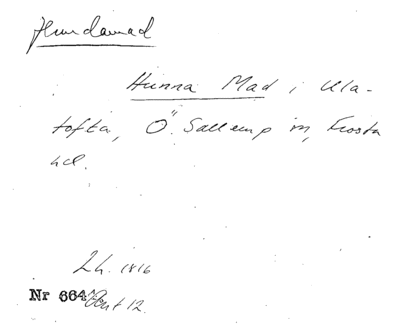 Hundamad
Hunna Mad i Ula-
tofta, Ö. Sallerup sn, Frosta
hd.
Lh. 1816
Nr 664